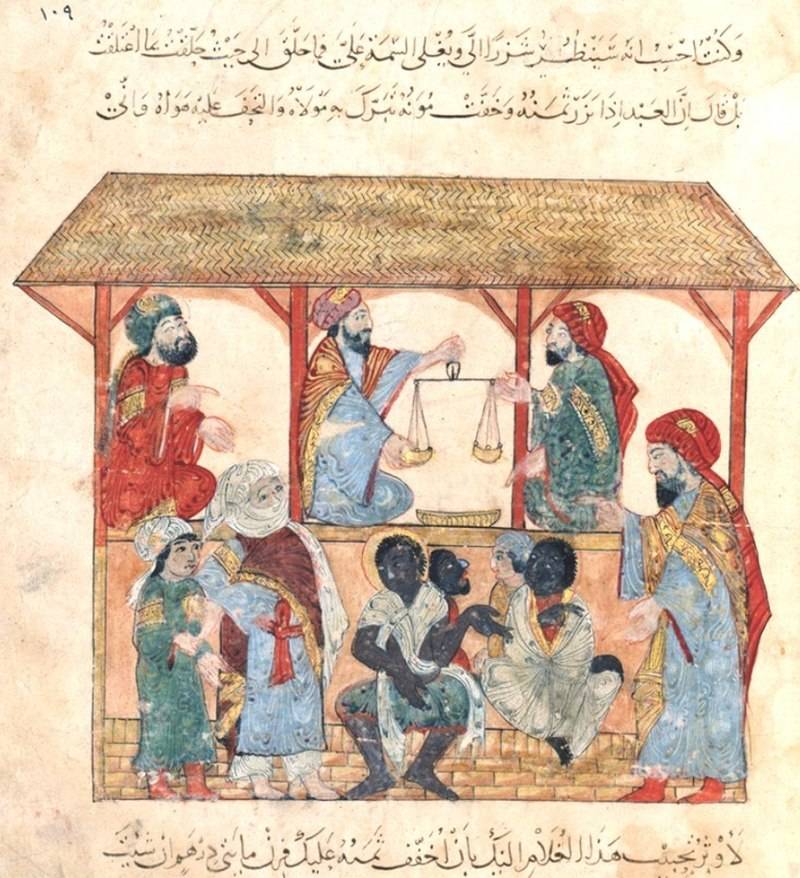 ١٠٩
وَكُنْتُ اَحْسِبُ انه سَيَنْظُرُ شَزْرًا الَيَّ ويُغْلى السِّمَةَ عَلَيَّ فما حَلَّقَ الى حَيْثُ حَلَّقْتُ بما اعْتَلَقْتُ
بَلْ قَالَ اِنَّ العَبْدَ اِذَا نَزُرَ ثَمَنُهُ وَخَفَّتْ مُؤَنُهُ تَبَرَّكَ بِهِ مَوْلَاهُ وَالتَحَفَ عَلَيْهِ هَوَاهُ وَانِّيْ
لَاُوثِرُ تَحْبِيْبَ هٰذَا الغُلَامِ الَيْكَ بِاَنْ اُخَفِّفَ ثَمَنَهُ عَلَيْكَ فَزِنْ مِائَتَيْ دِرْهَمٍ اِنْ شِئْتَ